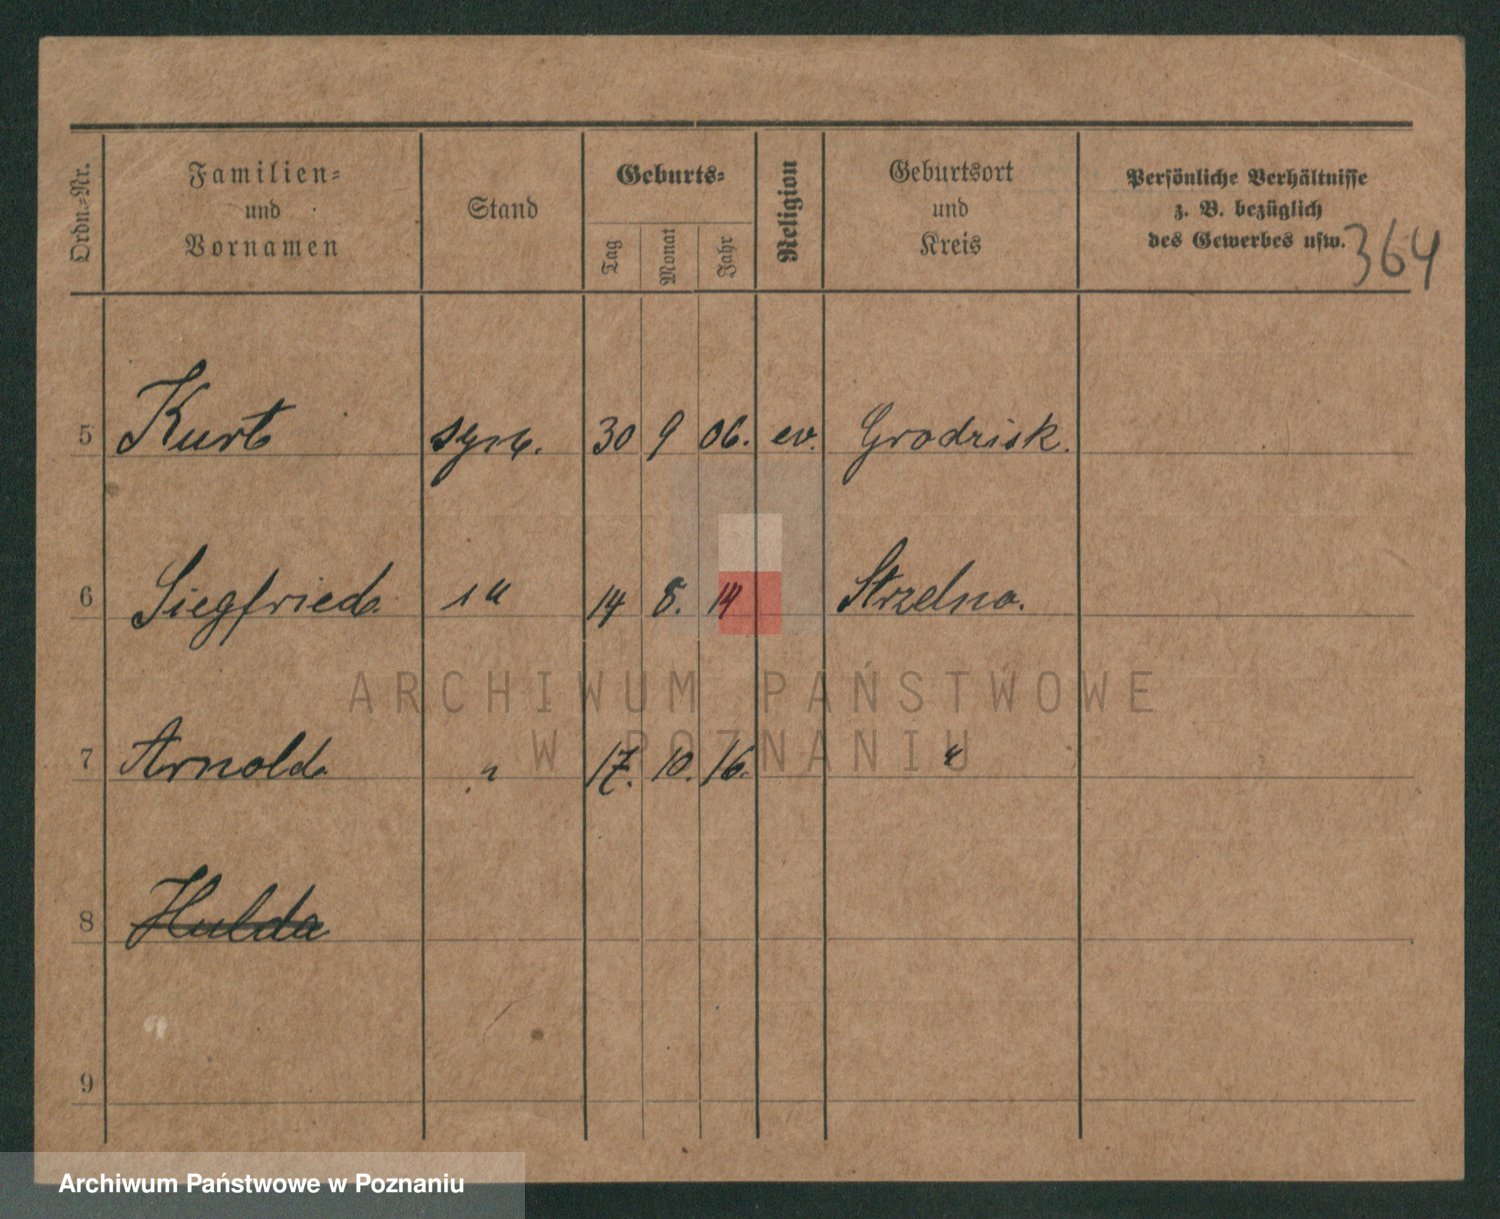 Ordn.-Nr.
Familien-
und
Vornamen
Stand
Geburts-
Tag
Monat
Jahr
Religion
Geburtsort
und
Kreis
Persönliche Verhältnisse
z. B. bezüglich
des Gewerbes usw.
364
5 Kurt 30 9 06. ev. Grodzisk.
6 Siegfried 14 8. 14 Strzelno.
7 Arnold " 17. 10. 16. "
8 Hulda
9
ARCHIWUM PAŃSTWOWE
W POZNANIU
Archiwum Państwowe w Poznaniu